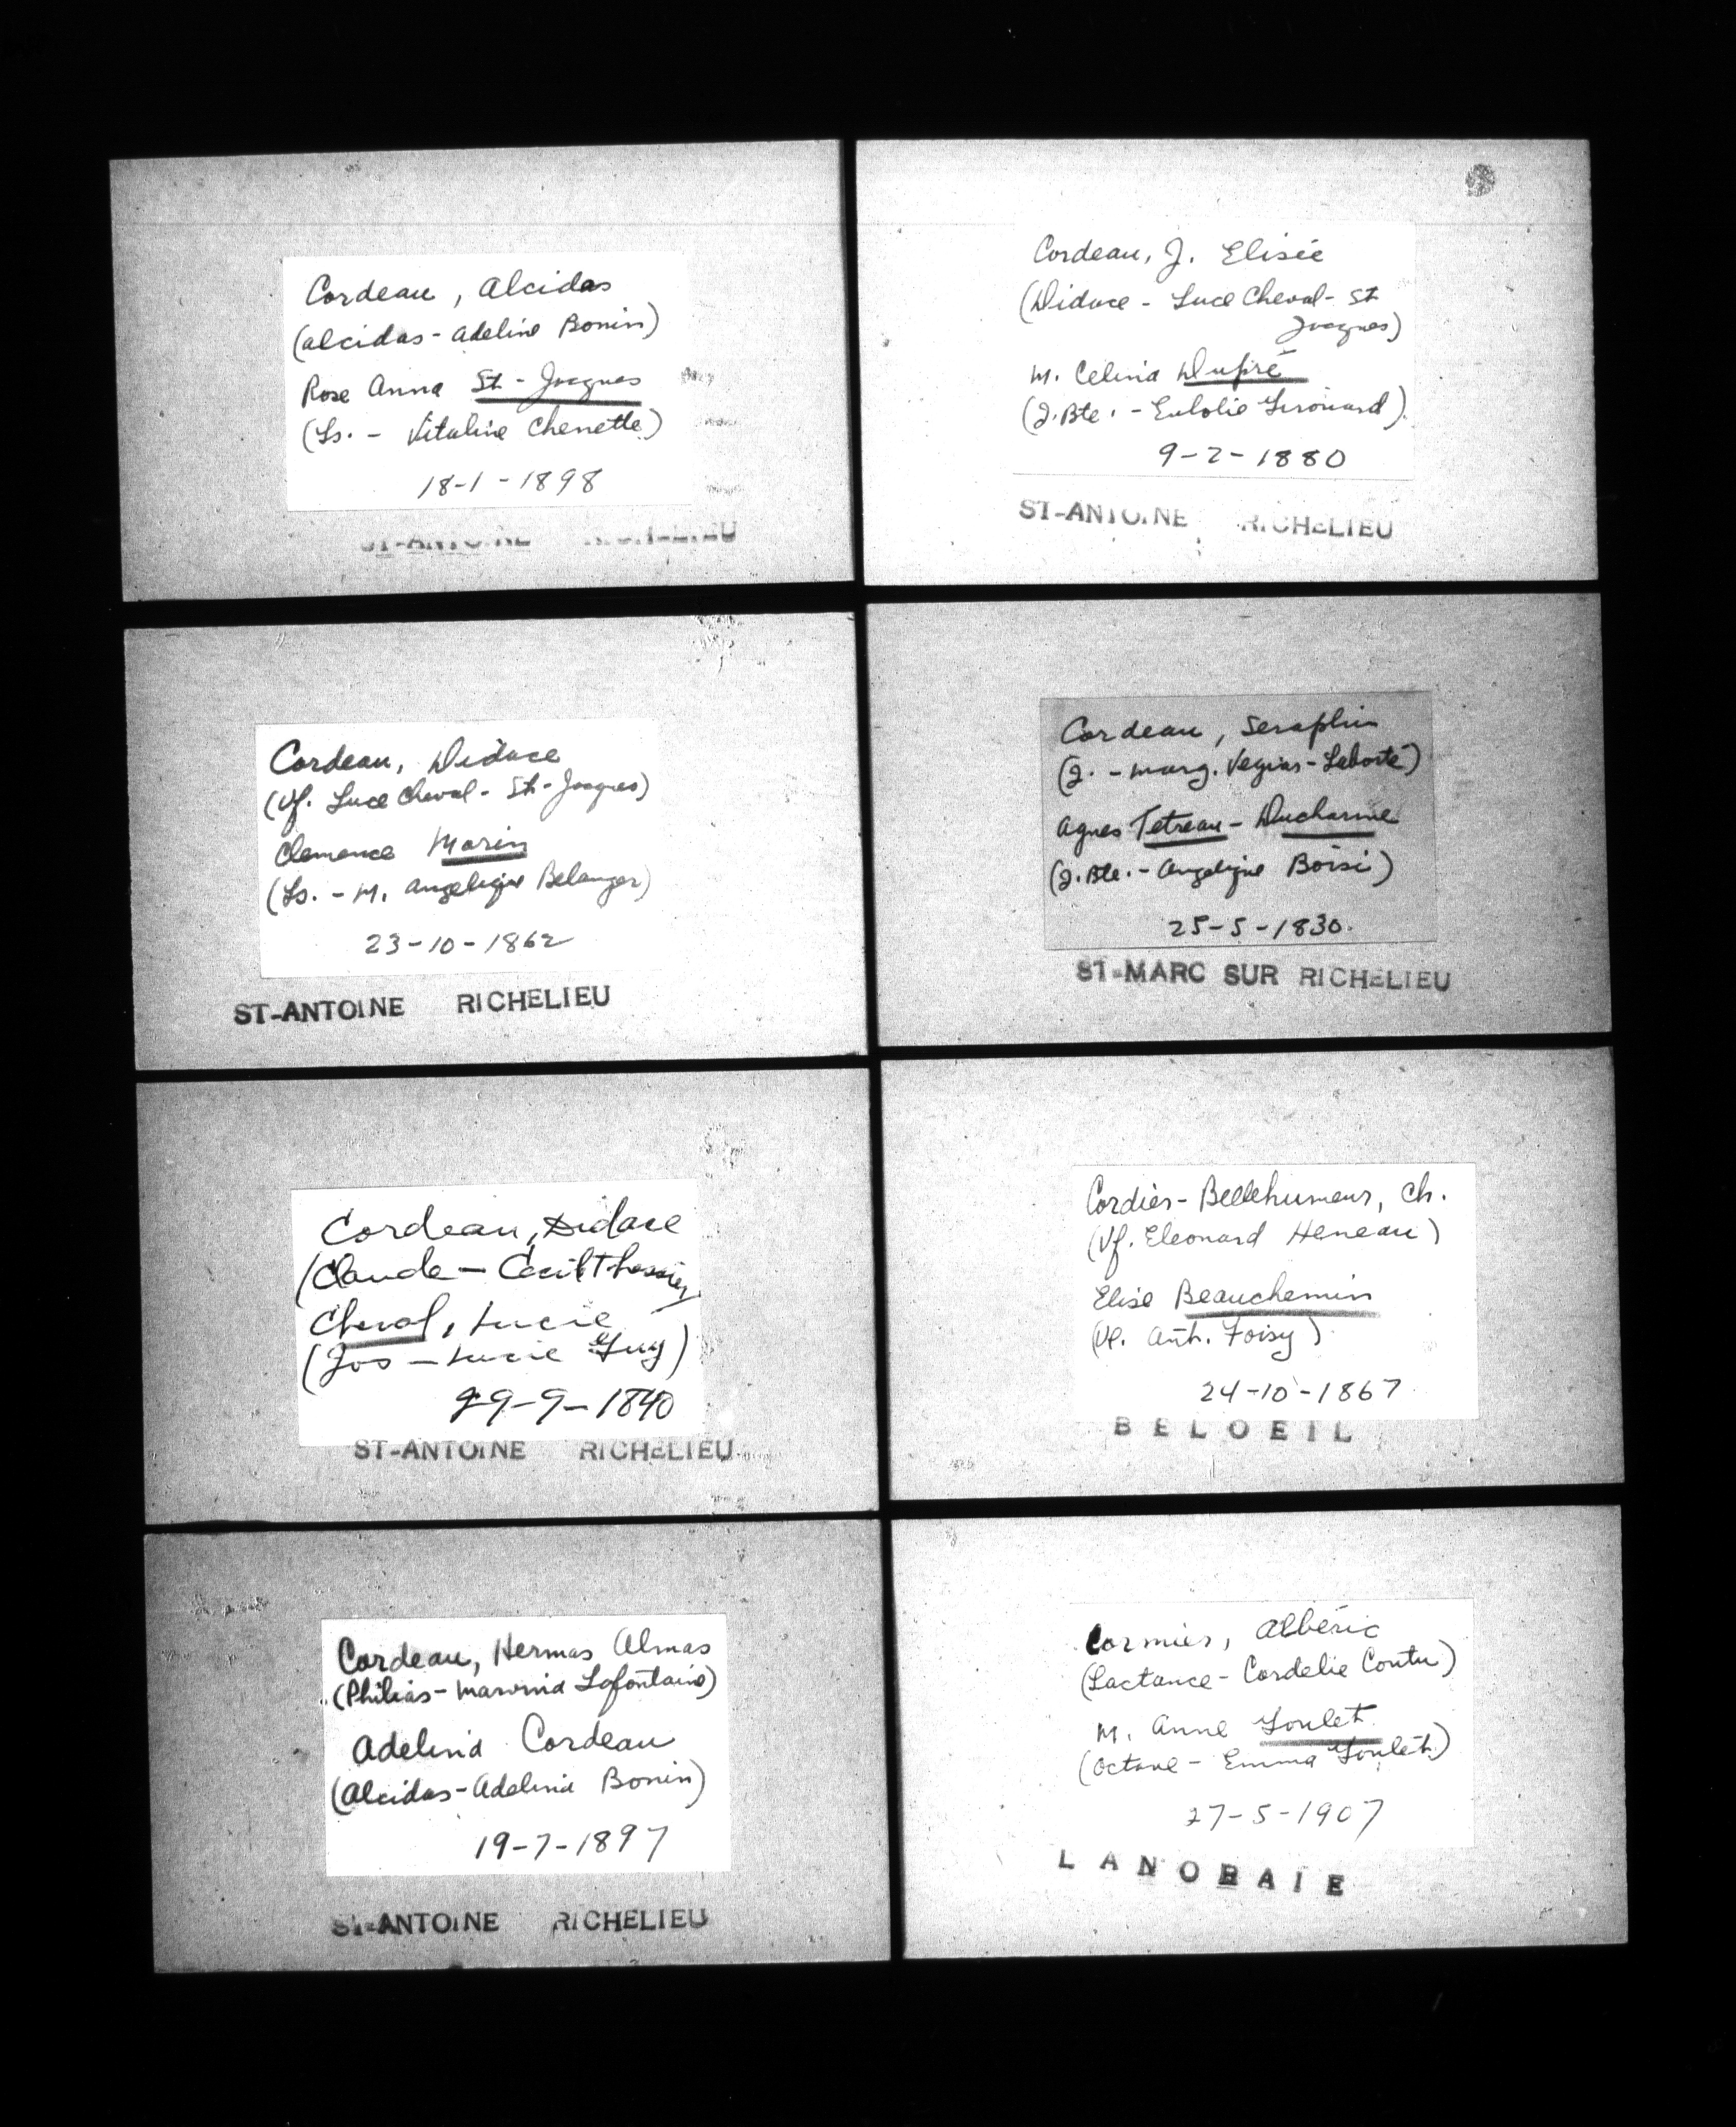 Cordeau, Alcidas
(Alcidas - Adeline Bonin)
Rose Anna St-Jacques
(Ls. - Vitaline Chenette)
18-1-1898
ST-ANTOINE RICHELIEU
Cordeau, Didace
(Vf. Luce Cheval - St-Jacques)
Clemence Morin
(Ls. - M. Angelique Belanger)
23-10-1862
ST-ANTOINE RICHELIEU
Cordeau, Didace
(Claude - Cecil Thessier
Cheval, Lucie
(Jos - Lucie Guy)
29-9-1840
ST-ANTOINE RICHELIEU
Cordeau, Hermas Almas
(Philias - Marvina Lafontaine)
Adelina Cordeau
(Alcidas - Adelina Bonin)
19-7-1897
ST-ANTOINE RICHELIEU
Cordeau, J. Elisée
(Didace - Luce Cheval - St
Jacques)
M. Celina Dupré
(J.Bte. - Eulolie Girouard)
9-2-1880
ST-ANTOINE RICHELIEU
Cordeau, Seraphin
(J. - Marg. Vegias - Laborté)
Agnes Tetreau - Ducharme
(J.Bte. - Angelique Boisi)
25-5-1830.
ST-MARC SUR RICHELIEU
Cordier - Bellehumeur, Ch.
(Vf. Eleonard Heneau)
Elise Beauchemin
(Ve. Ant. Foisy)
24-10-1867
BELOEIL
Cormier, Albéric
(Lactance - Cordelie Coutu)
M. Anne Goulet
(Octave - Emma Goulet)
27-5-1907
LANORAIE